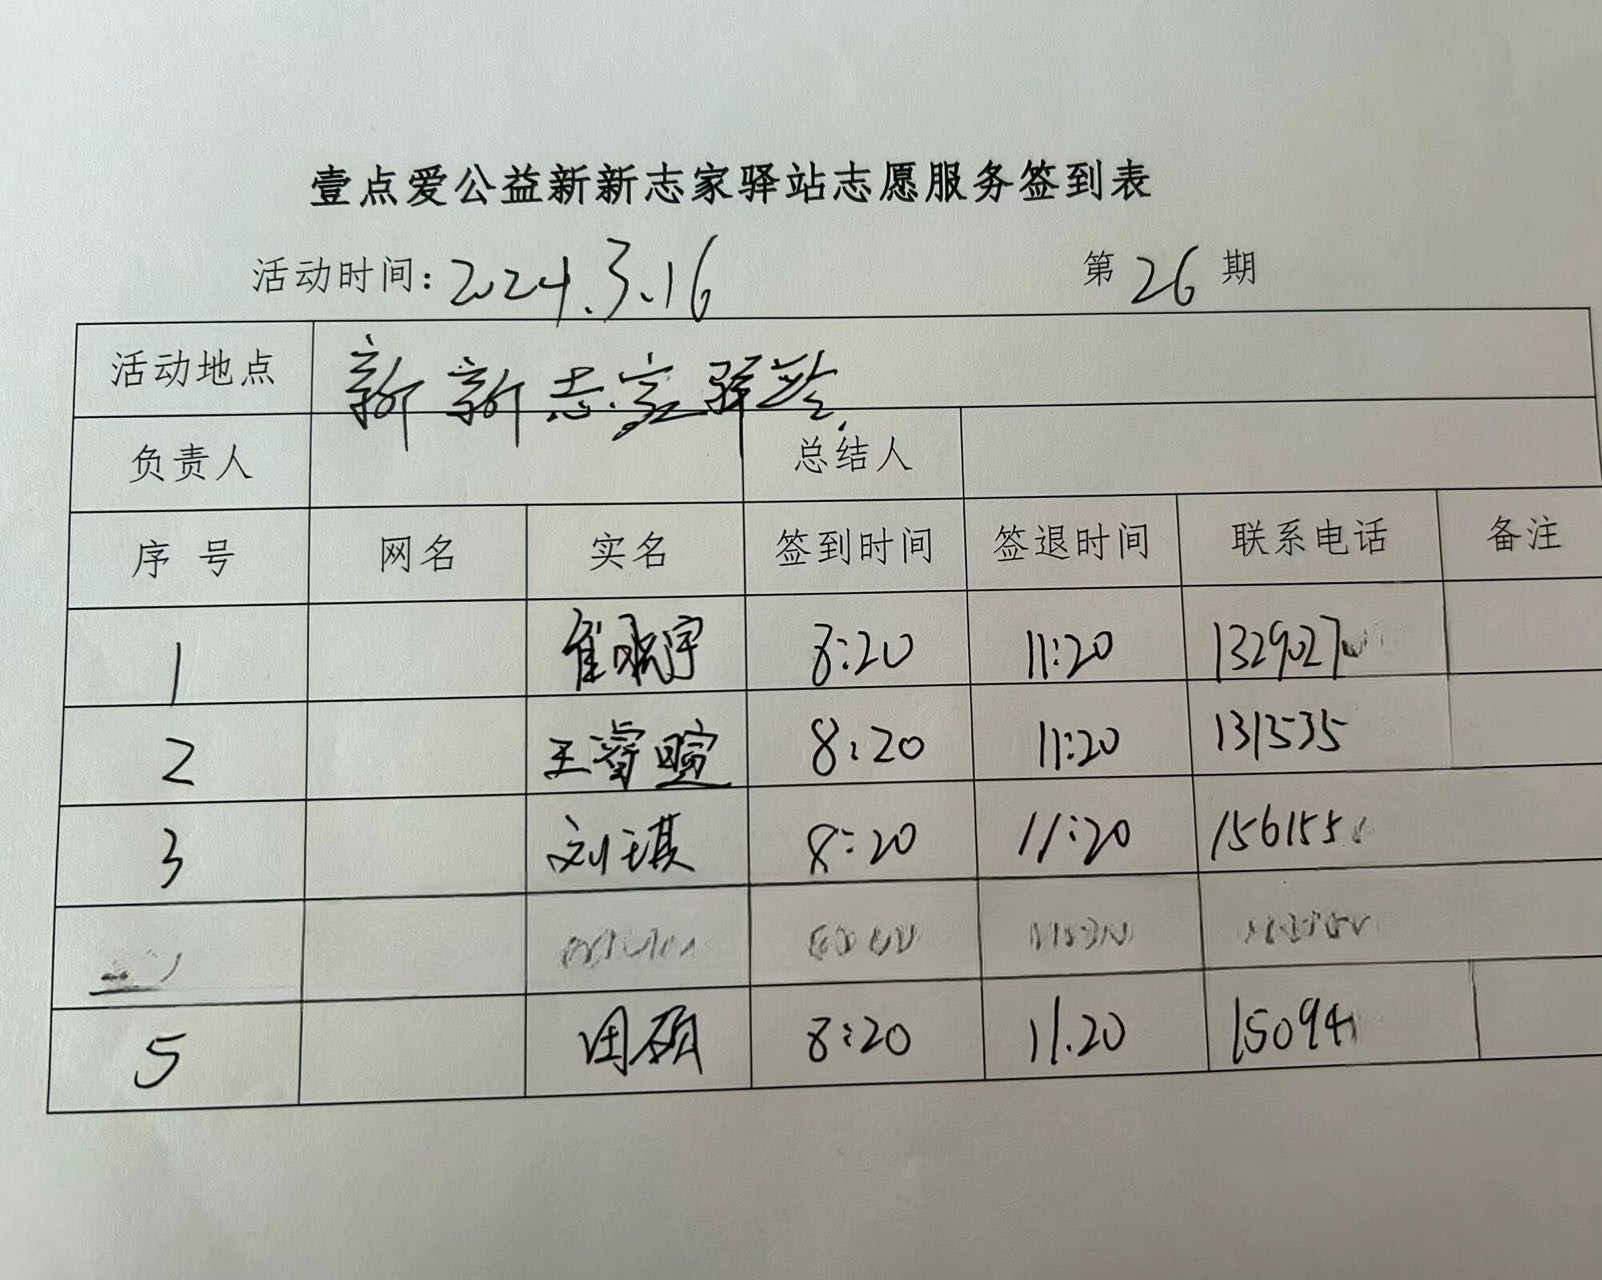 壹点爱公益新新志家驿站志愿服务签到表
活动时间：2024.3.16 第26期
活动地点 新新志家驿站
负责人 总结人
序号 网名 实名 签到时间 签退时间 联系电话 备注
1 8:20 11:20 1329027
2 王睿暄 8:20 11:20 131535
3 刘琪 8:20 11:20 156155
5 田硕 8:20 11.20 15094